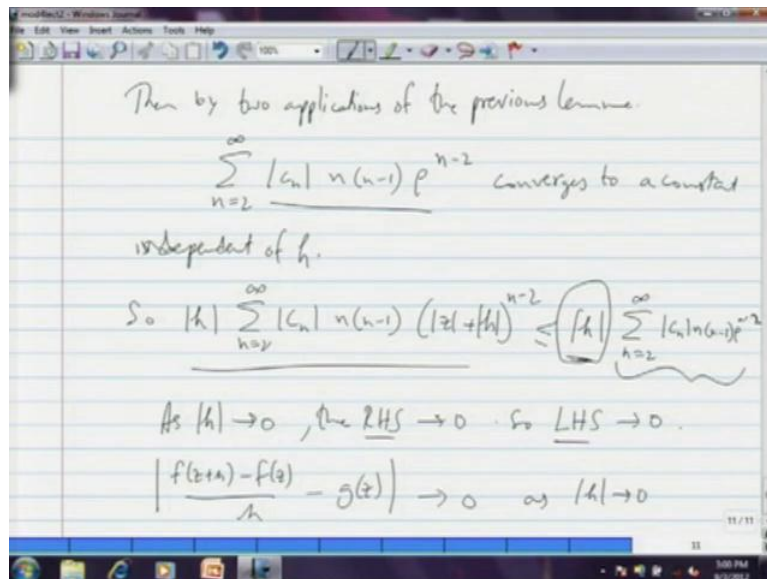 mod4lect2 - Windows Journal
File Edit View Insert Actions Tools Help
100%
Then by two applications of the previous lemma.
∑_{n=2}^{∞} |c_n| n(n-1) ρ^{n-2} converges to a constant
independent of h.
So |h| ∑_{n=2}^{∞} |c_n| n(n-1) (|z|+|h|)^{n-2} ≤ |h| ∑_{n=2}^{∞} |c_n| n(n-1) ρ^{n-2}
As |h| → 0, the RHS → 0. So LHS → 0.
| (f(z+h) - f(z))/h - g(z) | → 0 as |h| → 0
11/11
11
3:00 PM
9/3/2012